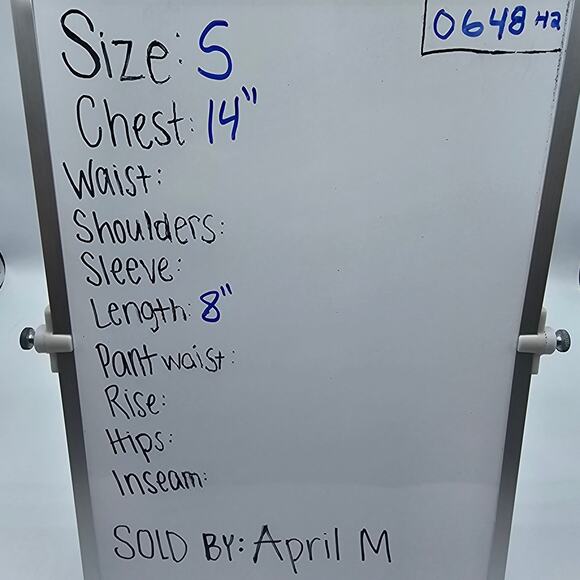 0648 H2
Size: S
Chest: 14"
Waist:
Shoulders:
Sleeve:
Length: 8"
Pant waist:
Rise:
Hips:
Inseam:
SOLD BY: April M